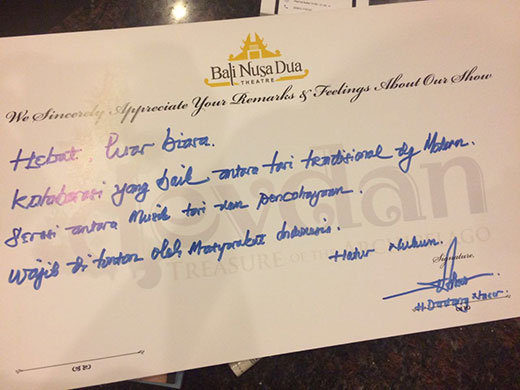 Bali Nusa Dua
THEATRE
We Sincerely Appreciate Your Remarks & Feelings About Our Show
Hebat. Luar biasa.
Kolaborasi yang baik antara tari tradisional dg Modern.
Serasi antara Musik tari dan pencahayaan.
Wajib di tonton oleh Masyarakat Indonesia.
Devdan
TREASURE OF THE ARCHIPELAGO
Hatur Nuhun.
Signature,
H Dadang